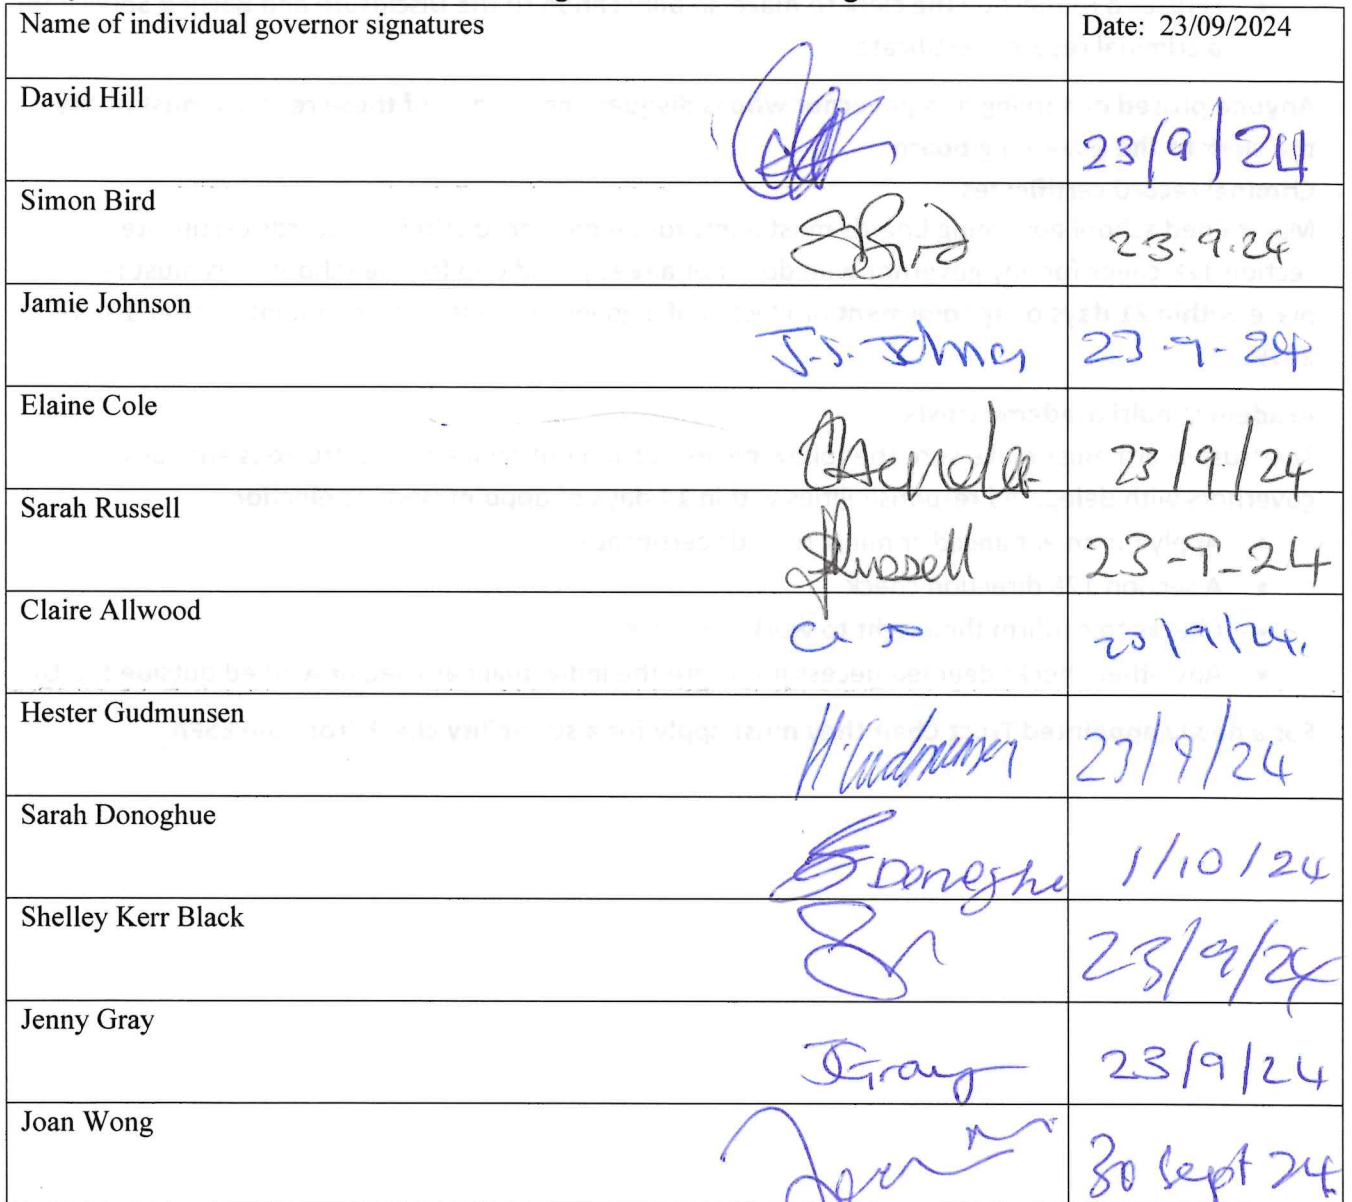 Name of individual governor signatures Date: 23/09/2024
David Hill 23/9/24
Simon Bird SBird 23.9.24
Jamie Johnson J.S. Johnson 23-9-24
Elaine Cole 23/9/24
Sarah Russell SRussell 23-9-24
Claire Allwood /9/24.
Hester Gudmunsen HGudmunsen 23/9/24
Sarah Donoghue SDonoghue 1/10/24
Shelley Kerr Black 23/9/24
Jenny Gray JGray 23/9/24
Joan Wong 30 Sept 24